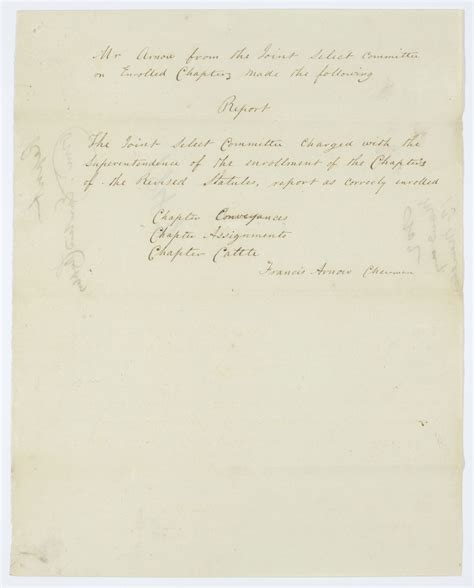 Mr Arnow from the Joint Select Committee
on Enrolled Chapters made the following
Report
The Joint Select Committee charged with the
Superentendence of the enrollment of the Chapters
of the Revised Statutes, report as correcly enrolled
Chapter Conveyances
Chapter Assignments
Chapter Cattle
Francis Arnow Chairman